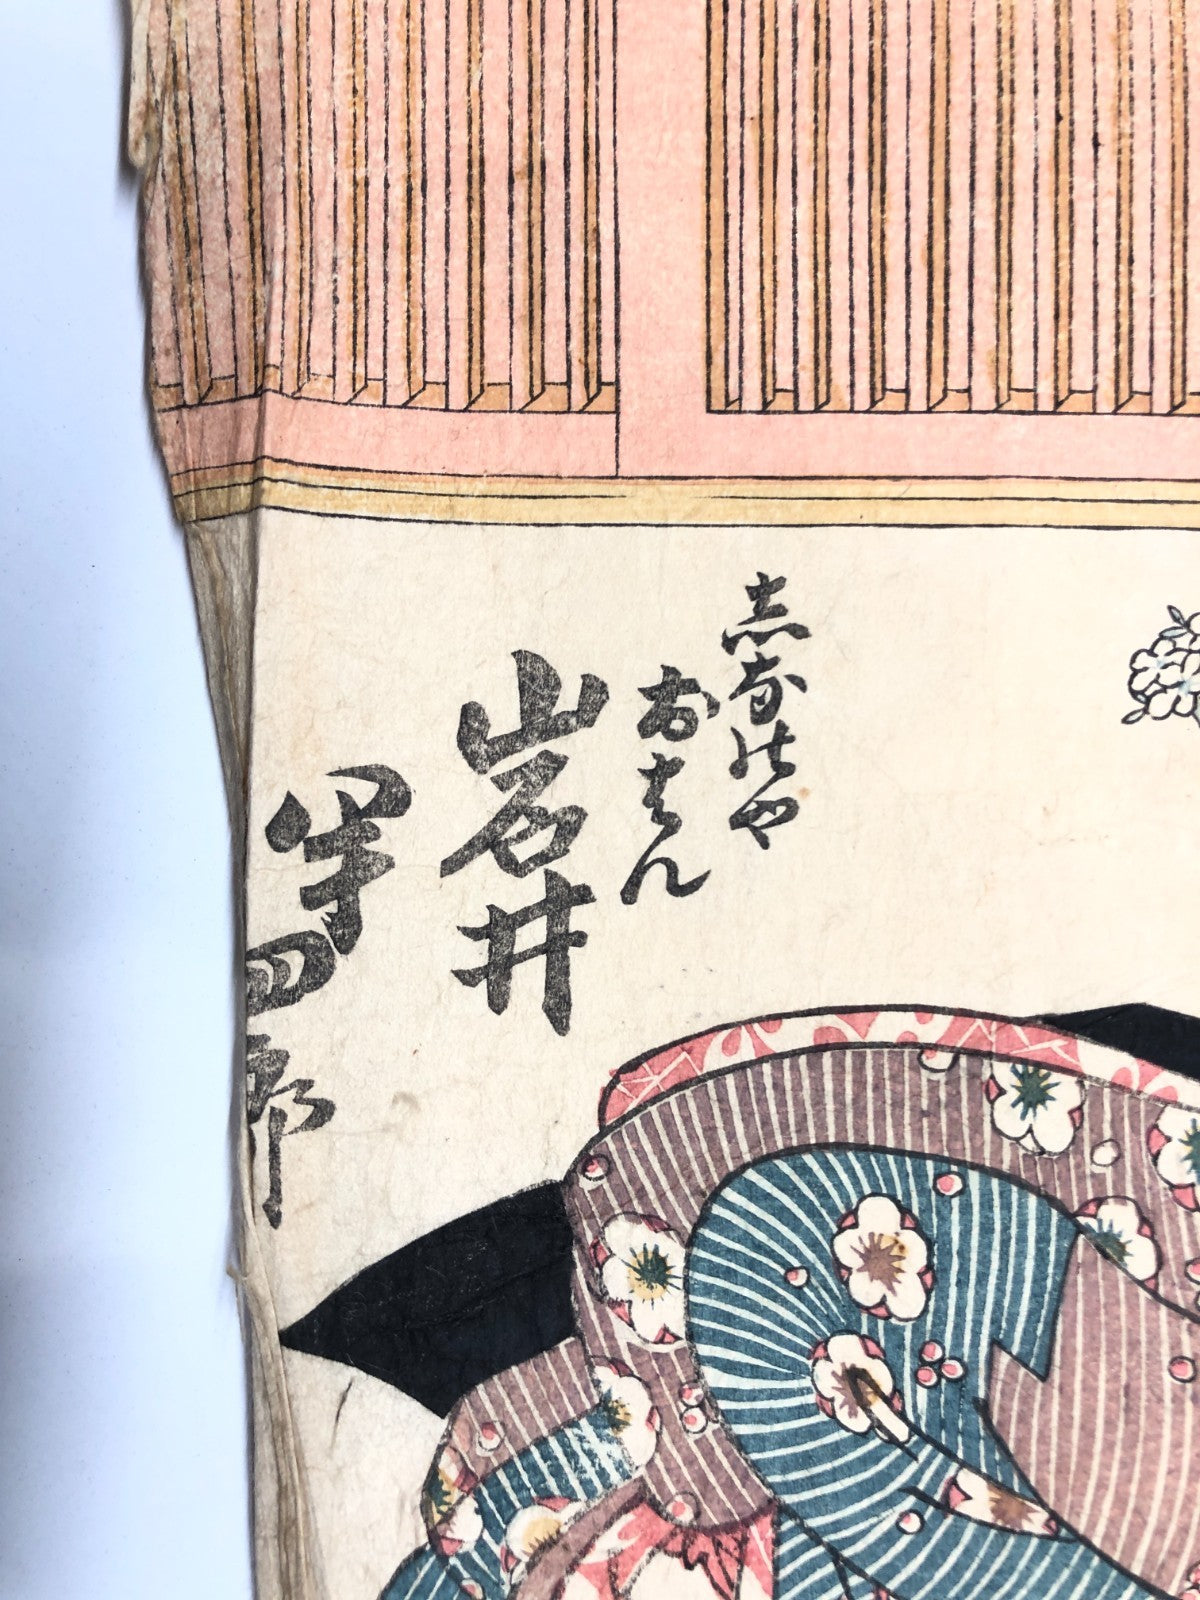 志なのや
おはん
岩井
半四郎